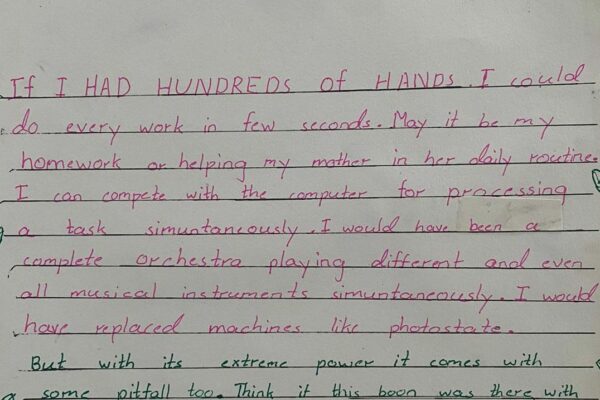 If I HAD HUNDREDS of HANDS. I could
do every work in few seconds. May it be my
homework or helping my mother in her daily routine.
I can compete with the computer for processing
a task simuntaneously. I would have been a
complete orchestra playing different and even
all musical instruments simuntaneously. I would
have replaced machines like photostate.
But with its extreme power it comes with
some pitfall too. Think if this boon was there with